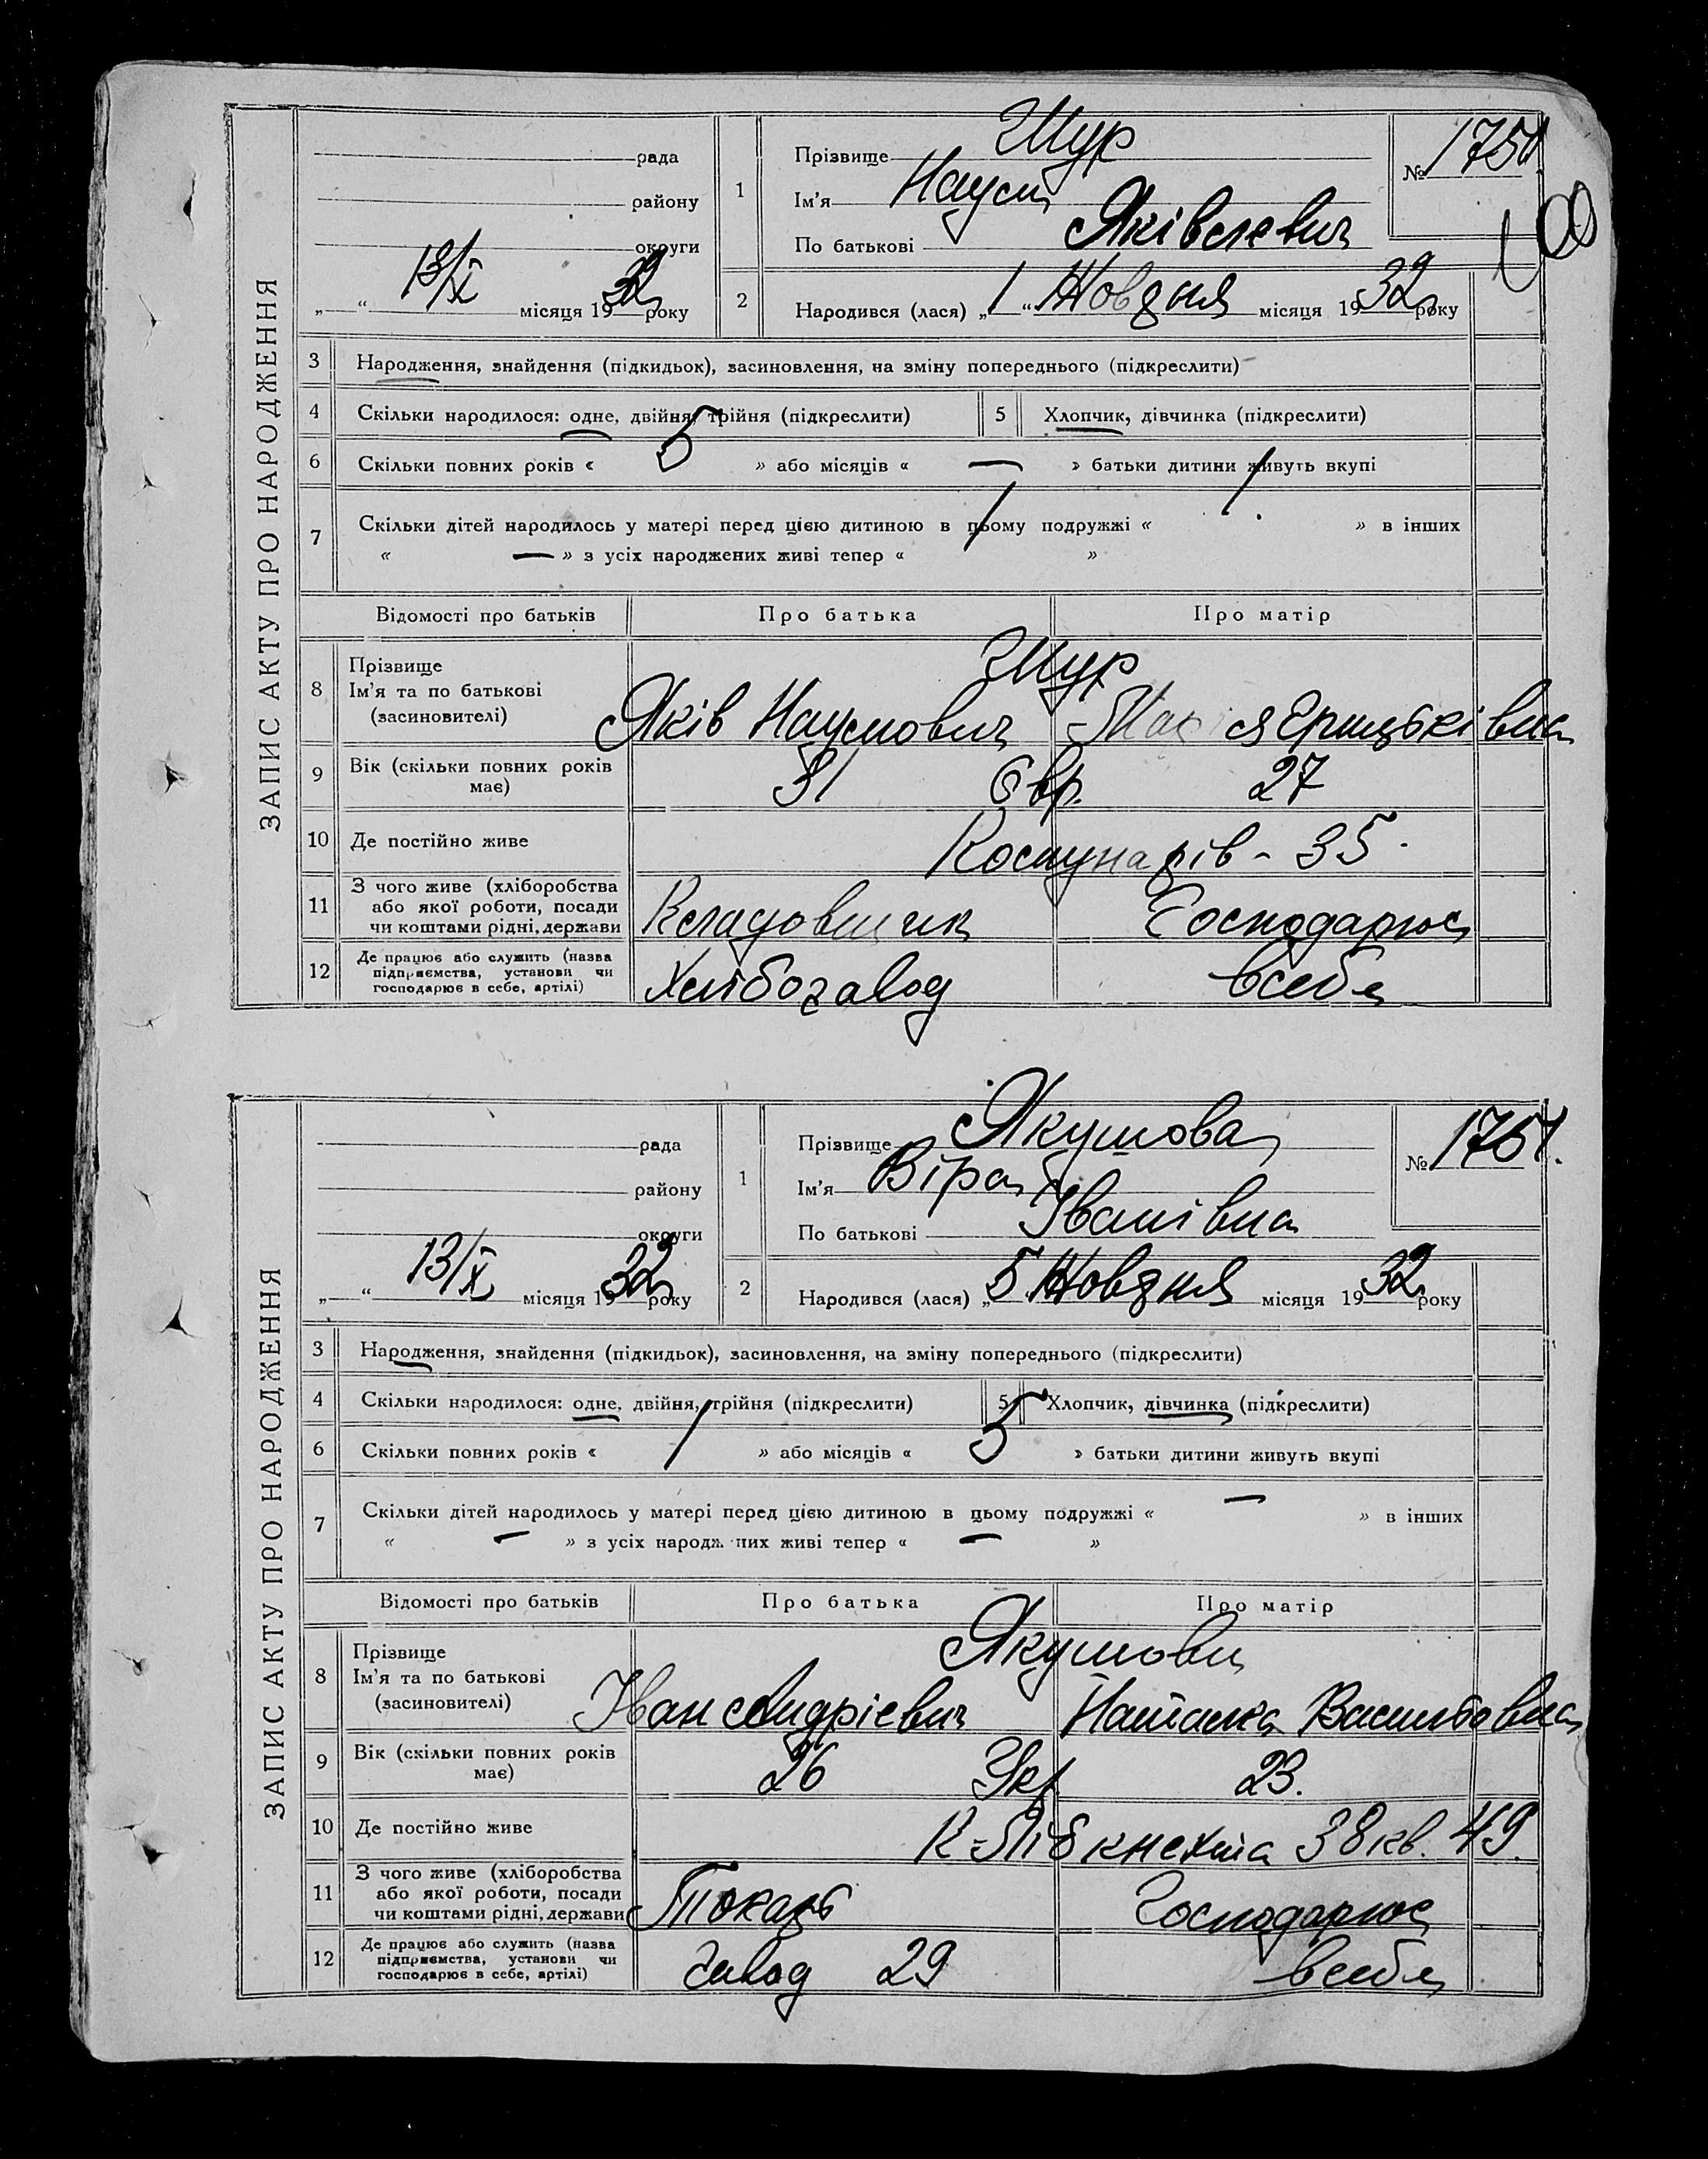 ЗАПИС АКТУ ПРО НАРОДЖЕННЯ
рада
району
округи
„ “ 13/X місяця 1932 року
1
Прізвище Щур
Ім'я Наум
По батькові Яківлевич
№ 1750
100
2
Народився (лася) „1“ Жовдня місяця 1932 року
3 Народження, знайдення (підкидьок), засиновлення, на зміну попереднього (підкреслити)
4 Скільки народилося: одне, двійня, трійня (підкреслити) 5 Хлопчик, дівчинка (підкреслити)
6 Скільки повних років « 5 » або місяців « — » батьки дитини живуть вкупі
7 Скільки дітей народилось у матері перед цією дитиною в цьому подружжі « 1 » в інших
« — » з усіх народжених живі тепер « 1 »
Відомості про батьків Про батька Про матір
8 Прізвище
Ім'я та по батькові
(засиновителі)
Щур
Яків Наумович
9 Вік (скільки повних років має) 31 Євр. 27
10 Де постійно живе Комунарів - 35.
11 З чого живе (хліборобства
або якої роботи, посади
чи коштами рідні, держави
Кладовщик Господарює
12 Де працює або служить (назва
підприємства, установи чи
господарює в себе, артілі)
Хлібозавод вcебе
ЗАПИС АКТУ ПРО НАРОДЖЕННЯ
рада
району
округи
„ “ 13/X місяця 1932 року
1
Прізвище Якушова
Ім'я Віра
По батькові Іванівна
№ 1751.
2
Народився (лася) „5 Жовдня місяця 1932 року
3 Народження, знайдення (підкидьок), засиновлення, на зміну попереднього (підкреслити)
4 Скільки народилося: одне, двійня, трійня (підкреслити) 5 Хлопчик, дівчинка (підкреслити)
6 Скільки повних років « 1 » або місяців « 5 » батьки дитини живуть вкупі
7 Скільки дітей народилось у матері перед цією дитиною в цьому подружжі « — » в інших
« — » з усіх народжених живі тепер « — »
Відомості про батьків Про батька Про матір
8 Прізвище
Ім'я та по батькові
(засиновителі)
Якушови
Іван Андрієвич Наталка Васильовна
9 Вік (скільки повних років має) 26 Укр. 23.
10 Де постійно живе К-Лібкнехта 38 кв. 49.
11 З чого живе (хліборобства
або якої роботи, посади
чи коштами рідні, держави
Токарь Господарює
12 Де працює або служить (назва
підприємства, установи чи
господарює в себе, артілі)
Завод 29 всебе